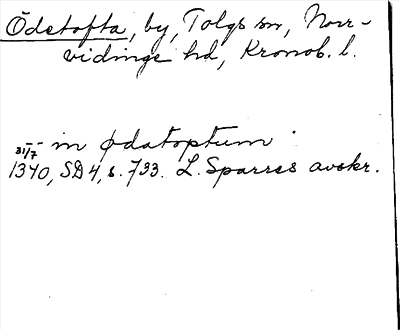 Ödetofta, by, Tolgs sn, Norr-
vidinge hd, Kronob. l.
-- in ødatoptum
31/7
1340, SD 4, s. 733. L. Sparres avskr.